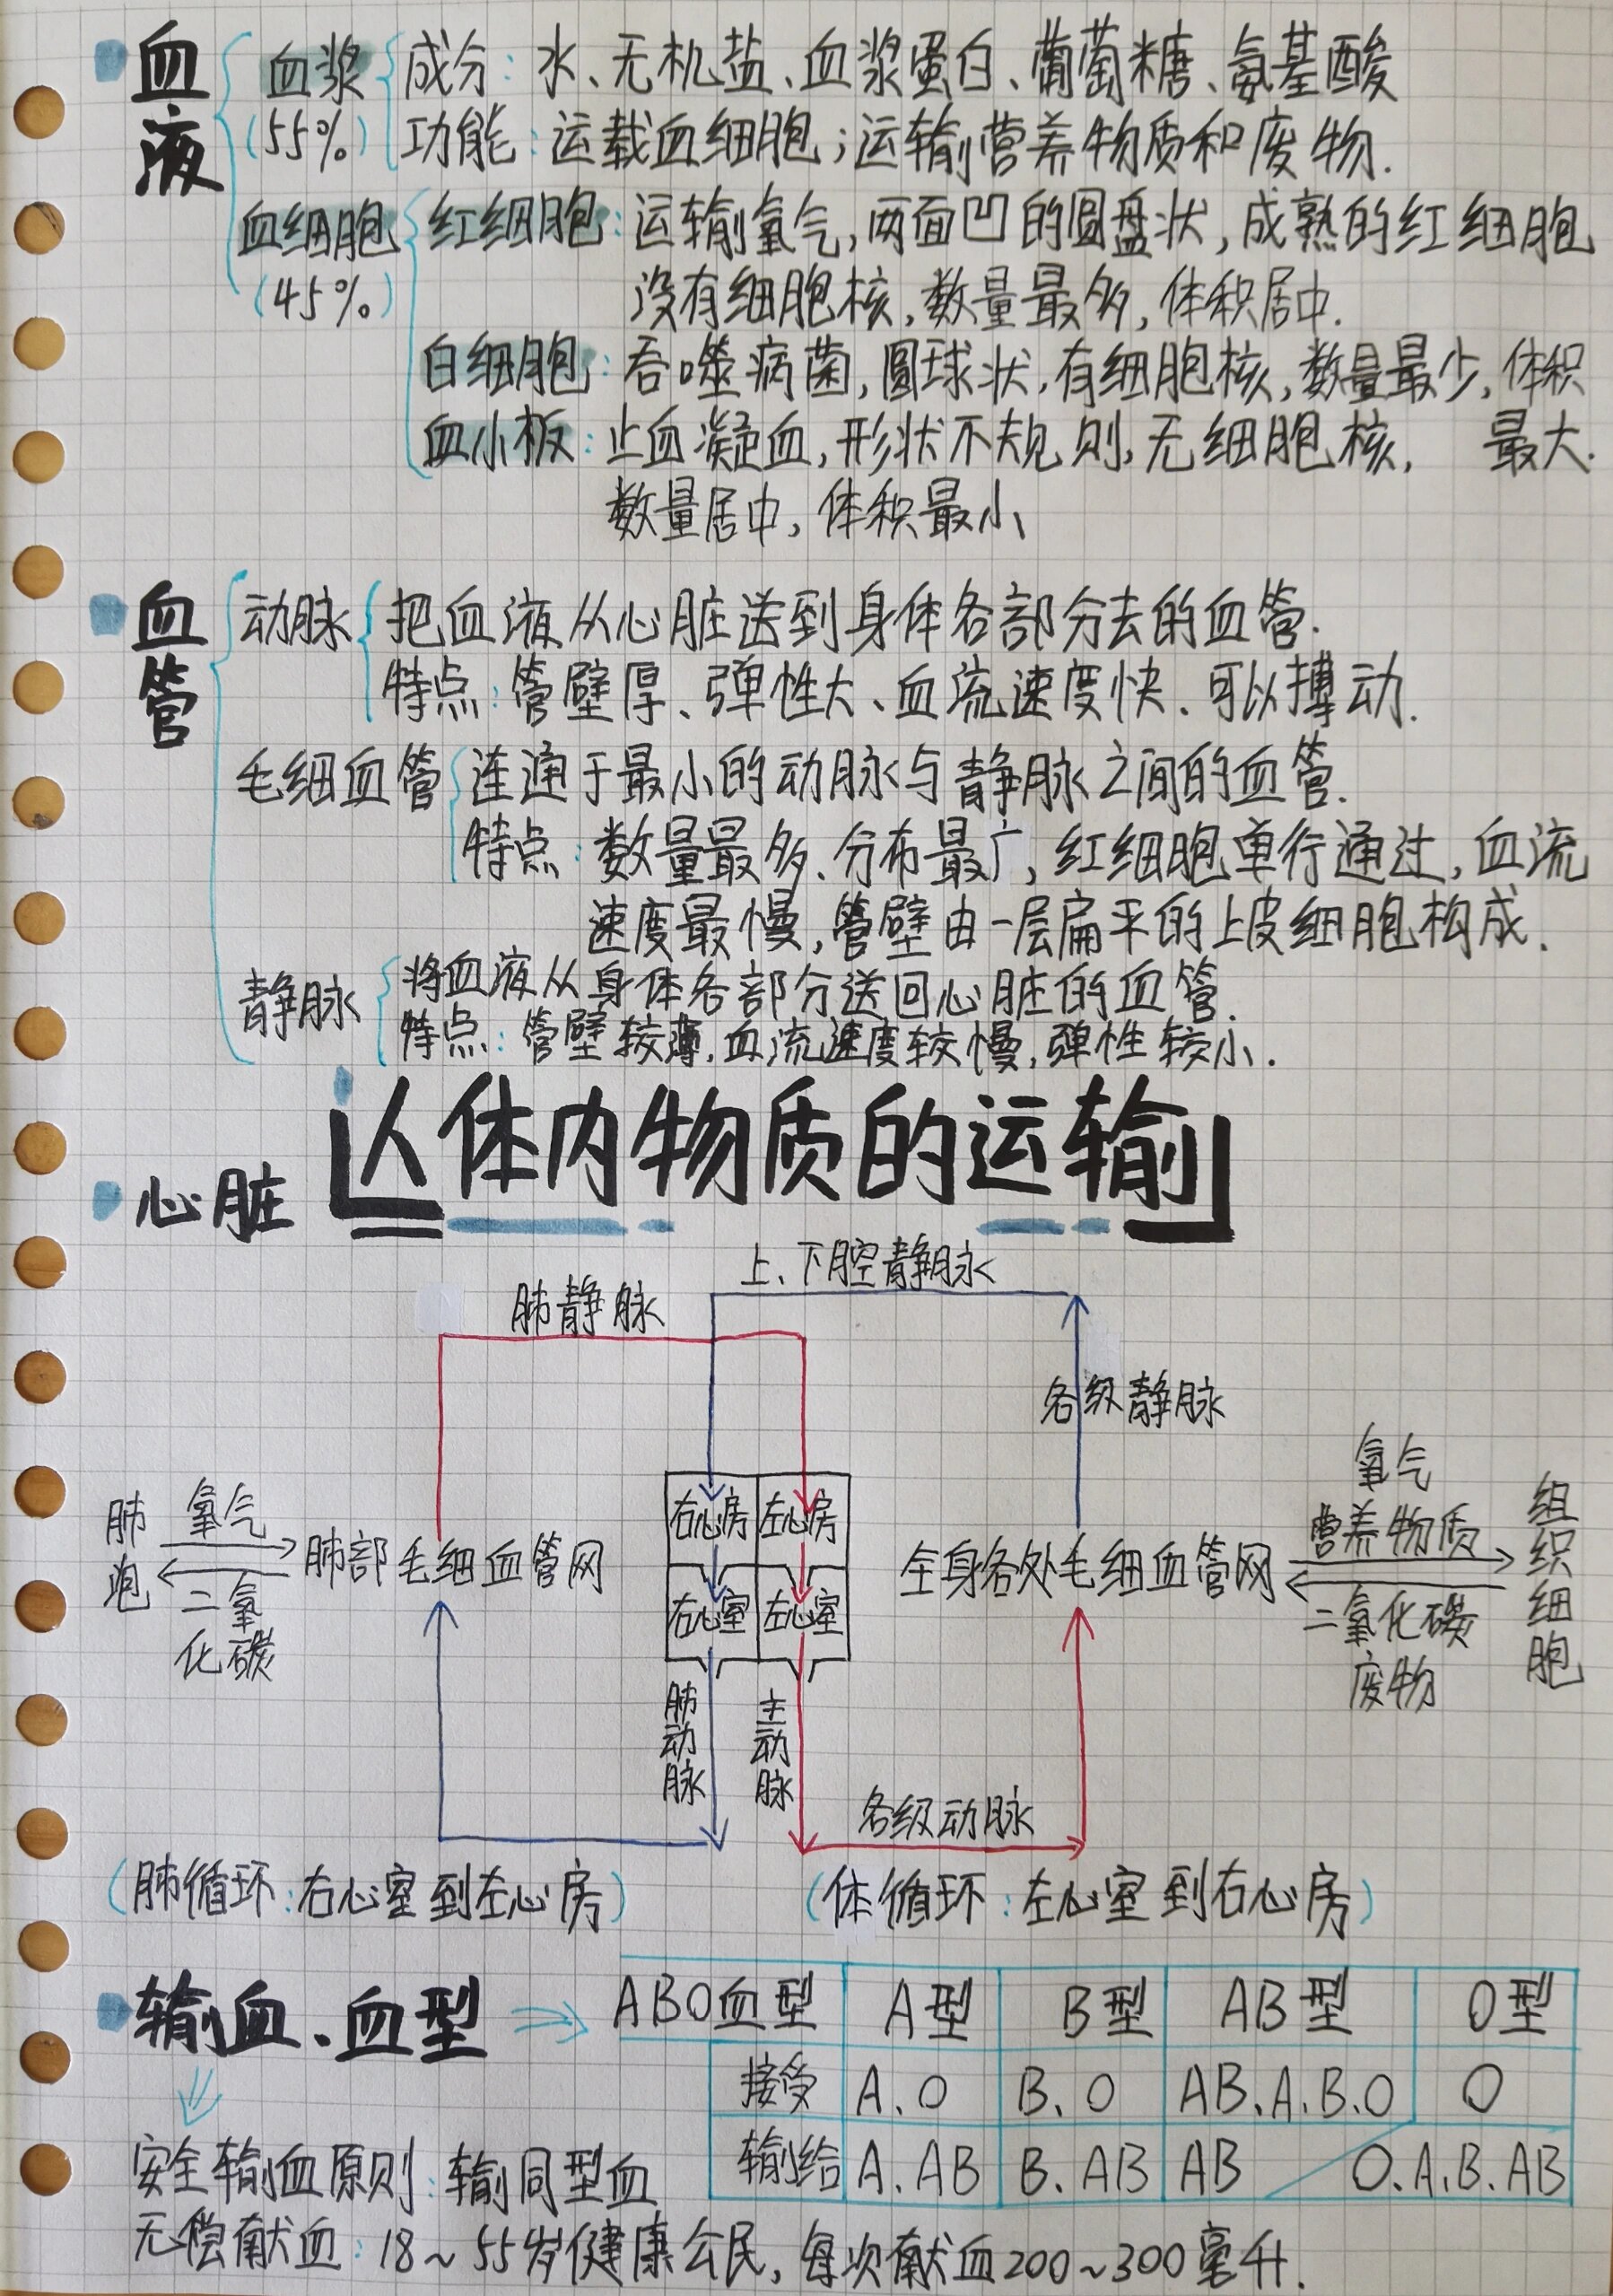 血液
血浆 成分：水、无机盐、血浆蛋白、葡萄糖、氨基酸
(55%) 功能：运载血细胞；运输营养物质和废物.
血细胞 红细胞：运输氧气，两面凹的圆盘状，成熟的红细胞
(45%) 没有细胞核，数量最多，体积居中.
白细胞：吞噬病菌，圆球状，有细胞核，数量最少，体积
最大.
血小板：止血凝血，形状不规则，无细胞核，
数量居中，体积最小
血管
动脉 把血液从心脏送到身体各部分去的血管.
特点：管壁厚、弹性大、血流速度快、可以搏动.
毛细血管 连通于最小的动脉与静脉之间的血管.
特点：数量最多、分布最广，红细胞单行通过，血流
速度最慢，管壁由一层扁平的上皮细胞构成.
静脉 将血液从身体各部分送回心脏的血管.
特点：管壁较薄，血流速度较慢，弹性较小.
人体内物质的运输
心脏
上、下腔静脉
肺静脉
各级静脉
肺泡
氧气
二氧
化碳
肺部毛细血管网
右心房 左心房
右心室 左心室
全身各处毛细血管网
氧气
营养物质
二氧化碳
废物
组织细胞
肺动脉
主动脉
各级动脉
(肺循环：右心室到左心房)
(体循环：左心室到右心房)
输血、血型
ABO血型 A型 B型 AB型 O型
接受 A、O B、O AB、A、B、O O
输给 A、AB B、AB AB O、A、B、AB
安全输血原则：输同型血
无偿献血：18~55岁健康公民，每次献血200~300毫升.